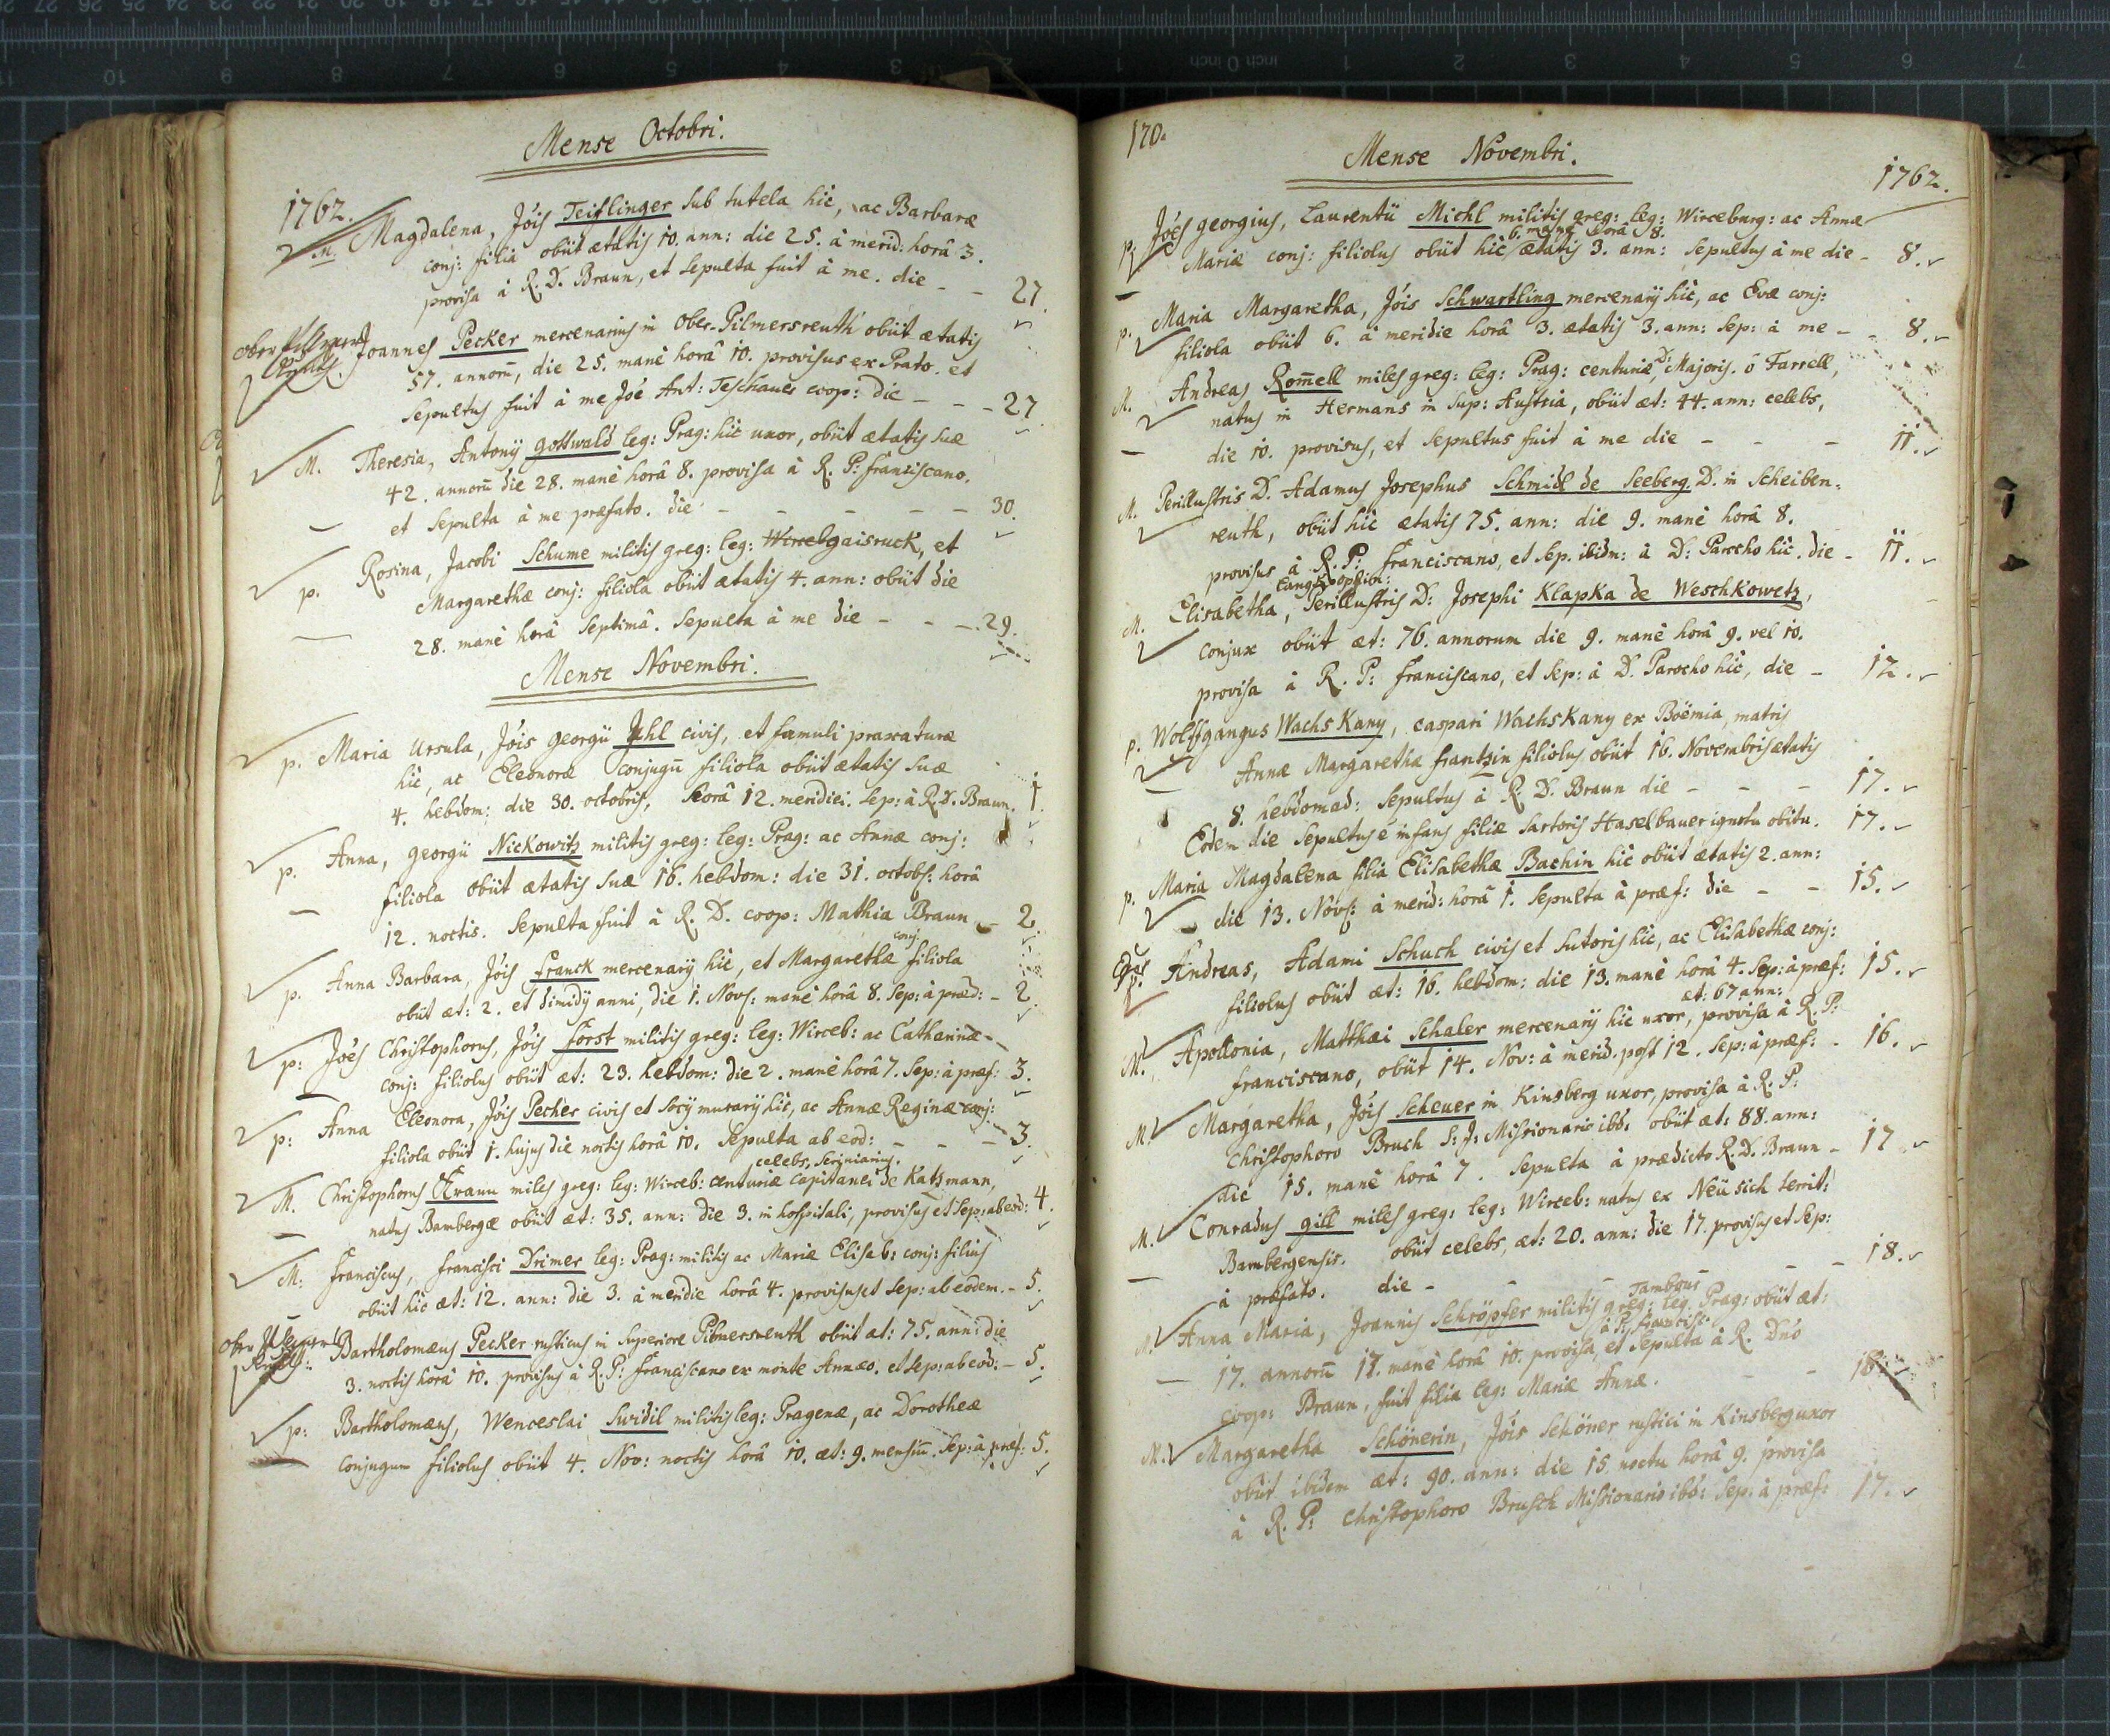 Mense Octobri.
1762.
M. Magdalena, Jõis Teiflinger sub tutela hic, ac Barbaræ
conj: filia obiit ætatis 10. ann: die 25. à merid: horâ 3.
provisa à R. D. Braun, et sepulta fuit à me. die - - 27.
Ober Pillmers
Reuth.
Joannes Pecker mercenarius in Ober-Pilmersreuth obiit ætatis
57. annorũ, die 25. manè horâ 10. provisus ex Prato. et
sepultus fuit à me Jõe Ant: Teschauer coop: die - - - 27
M. Theresia, Antonij Gottwald leg: Prag: hic uxor, obiit ætatis suæ
42. annorũ die 28. manè horâ 8. provisa à R. P: franciscano.
et sepulta à me præfato. die - - - - - 30.
p. Rosina, Jacobi Schume militis greg: leg: Wirceb gaisruck, et
Margarethæ conj: filiola obiit ætatis 4. ann: obiit die
28. manè horâ septimâ. Sepulta à me die - - - 29.
Mense Novembri.
p. Maria Ursula, Jõis Georgii Uhl civis, et famuli praxaturæ
hic, ac Eleonoræ conjugũ filiola obiit ætatis suæ
4. hebdom: die 30. octobris, horâ 12. meridiei. Sep: à R. D. Braun. 1.
p. Anna, Georgii Nickowitz militis greg: leg: Prag: ac Annæ conj:
filiola obiit ætatis suæ 16. hebdom: die 31. octobr: horâ
12. noctis. Sepulta fuit à R. D. coop: Mathia Braun - 2.
conj:
p. Anna Barbara, Jõis Franck mercenarij hic, et Margarethæ filiola
obiit æt: 2. et dimidij anni, die 1. Nov: manè horâ 8. Sep: à præd: - 2.
p: Joës Christophorus, Jõis Forst militis greg: leg: Wirceb: ac Catharinæ
conj: filiolus obiit æt: 23. hebdom: die 2. manè horâ 7. Sep: à præf: 3.
p: Anna Eleonora, Jõis Pecher civis et socij murarij hic, ac Annæ Reginæ conj:
filiola obiit 1. hujus die noctis horâ 10. Sepulta ab eod: - - - 3.
celebs, scriniarius.
M. Christophorus Braun miles greg: leg: Wirceb: centuriæ capitanei de Katzmann,
natus Bambergæ obiit æt: 35. ann: die 3. in hospitali, provisus et Sep: ab eod: 4.
M: Franciscus, Francisci Drimer leg: Prag: militis ac Mariæ Elisab: conj: filius
obiit hic æt: 12. ann: die 3. à meridie horâ 4. provisus et Sep: ab eodem. - 5.
Bartholomæus Pecker rusticus in superiore Pilmersreuth obiit æt: 75. ann: die
3. noctis horâ 10. provisus à R. P: Franciscano ex monte Annæo. et Sep: ab eod: - 5.
p: Bartholomæus, Wenceslai Swidil militis leg: Pragenæ, ac Dorotheæ
conjugum filiolus obiit 4. Nov: noctis horâ 10. æt: 9. mensiũ. Sep: à præf: 5.
170.
Mense Novembri.
1762.
p. Joës Georgius, Laurentii Michl militis greg: leg: Wirceburg: ac Annæ
6. manè horâ 8.
Mariæ conj: filiolus obiit hic ætatis 3. ann: sepultus à me die - 8.
p. Maria Margaretha, Jõis Schwartling mercenarij hic, ac Evæ conj:
filiola obiit 6. à meridie horâ 3. ætatis 3. ann: Sep: à me - - 8.
M. Andreas Rom̃ell miles greg: leg: Prag: centuriæ D: Majoris. ô Farrell,
natus in Hermans in sup: Austria, obiit æt: 44. ann: celebs,
die 10. provisus, et sepultus fuit à me die - - - 11.
M. Perillustris D. Adamus Josephus Schmidl de Seeberg. D. in Scheiben-
reuth, obiit hic ætatis 75. ann: die 9. manè horâ 8.
provisus à R. P: Franciscano, et Sep. ibidm: à D: Parocho hic. die - 11.
M. Elisabetha, Perillustris D: Josephi Klapka de Weschkowetz,
conjux obiit æt: 76. annorum die 9. manè horâ 9. vel 10.
provisa à R. P: Franciscano, et Sep: à D. Parocho hic, die - 12.
p. Wolffgangus Wachskany, Caspari Wachskany ex Boëmia, matris
Annæ Margarethæ Frantzin filiolus obiit 16. Novembris ætatis
8. hebdomad: sepultus à R. D. Braun die - - - 17.
Eodem die sepultus ẽ infans filiæ Sartoris Haselbauer ignotu obitu. 17.
p. Maria Magdalena filia Elisabethæ Bachin hic obiit ætatis 2. ann:
die 13. Nov: à merid: horâ 1. Sepulta à præf: die - - 15.
p. Andreas, Adami Schuch civis et sutoris hic, ac Elisabethæ conj:
filiolus obiit æt: 16. hebdom: die 13. manè horâ 4. Sep: à præf: 15.
æt: 67 ann:
M. Apollonia, Matthæi Schaler mercenarij hic uxor, provisa à R. P:
franciscano, obiit 14. Nov: à merid. post 12. Sep: à præf: - 16.
M. Margaretha, Jõis Scheuer in Kinsberg uxor, provisa à R. P:
Christophoro Bruch S: J: Missionario ibd: obiit æt: 88. ann:
die 15. manè horâ 7. Sepulta à prædicto R. D. Braun - 17
M. Conradus Gill miles greg: leg: Wirceb: natus ex Neüsich territ:
Bambergensis. obiit celebs, æt: 20. ann: die 17. provisus et Sep:
à præfato. die - - - - - 18.
Tambour
M. Anna Maria, Joannis Schröpfer militis greg: leg. Prag: obiit æt:
à P: Francis:
17. annorũ 17. manè horâ 10. provisa, et Sepulta à R. Dño
coop: Braun, fuit filia leg: Mariæ Annæ. - - 18.
M. Margaretha Schönerin, Jõis Schöner rustici in Kinsberg uxor
obiit ibidem æt: 90. ann: die 15. noctu horâ 9. provisa
à R. P: Christophoro Brusch Missionario ibd: Sep: à præf: 17.